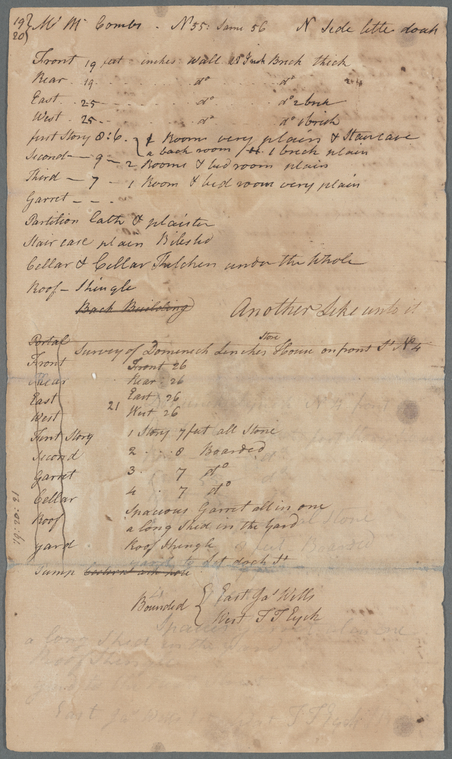 19
20} Mr McCombs - No 35: Same 56 N Side little dock
Front 19 feet - inches Wall 25 Inch Brick thick
Rear 19 . . . do . . . do
East . . 25 . . . do . . . do 2 brick
West . . 25 . . . do . . . do 1 brick
first Story 8:6. { 1 Room very plain & Staircase
a back room 1 brick plain
Second — 9 — 2 Rooms & bed room plain
Third — 7 — 1 Room & bed room very plain
Garret — - -
Partition Lath & plaister
Stair case plain
Cellar & Cellar Kitchen under the Whole
Roof - Shingle
Back Building Another Like unto it
Store
Survey of House on front St No 4
Front Front 26
Rear Rear 26
East East 26
21
West West 26
First Story 1 Story 7 feet all Stone
Second 2 . . 8 Boarded
Garret 3 . . 7 do
Cellar 4 . . 7 do
Roof Spacious Garret all in one
a long Shed in the Yard
Yard Roof Shingle
Pump
Bounded { East Jas Wells
West T T Eyck
19: 20: 21
a long Shed in the
East Jas Wells